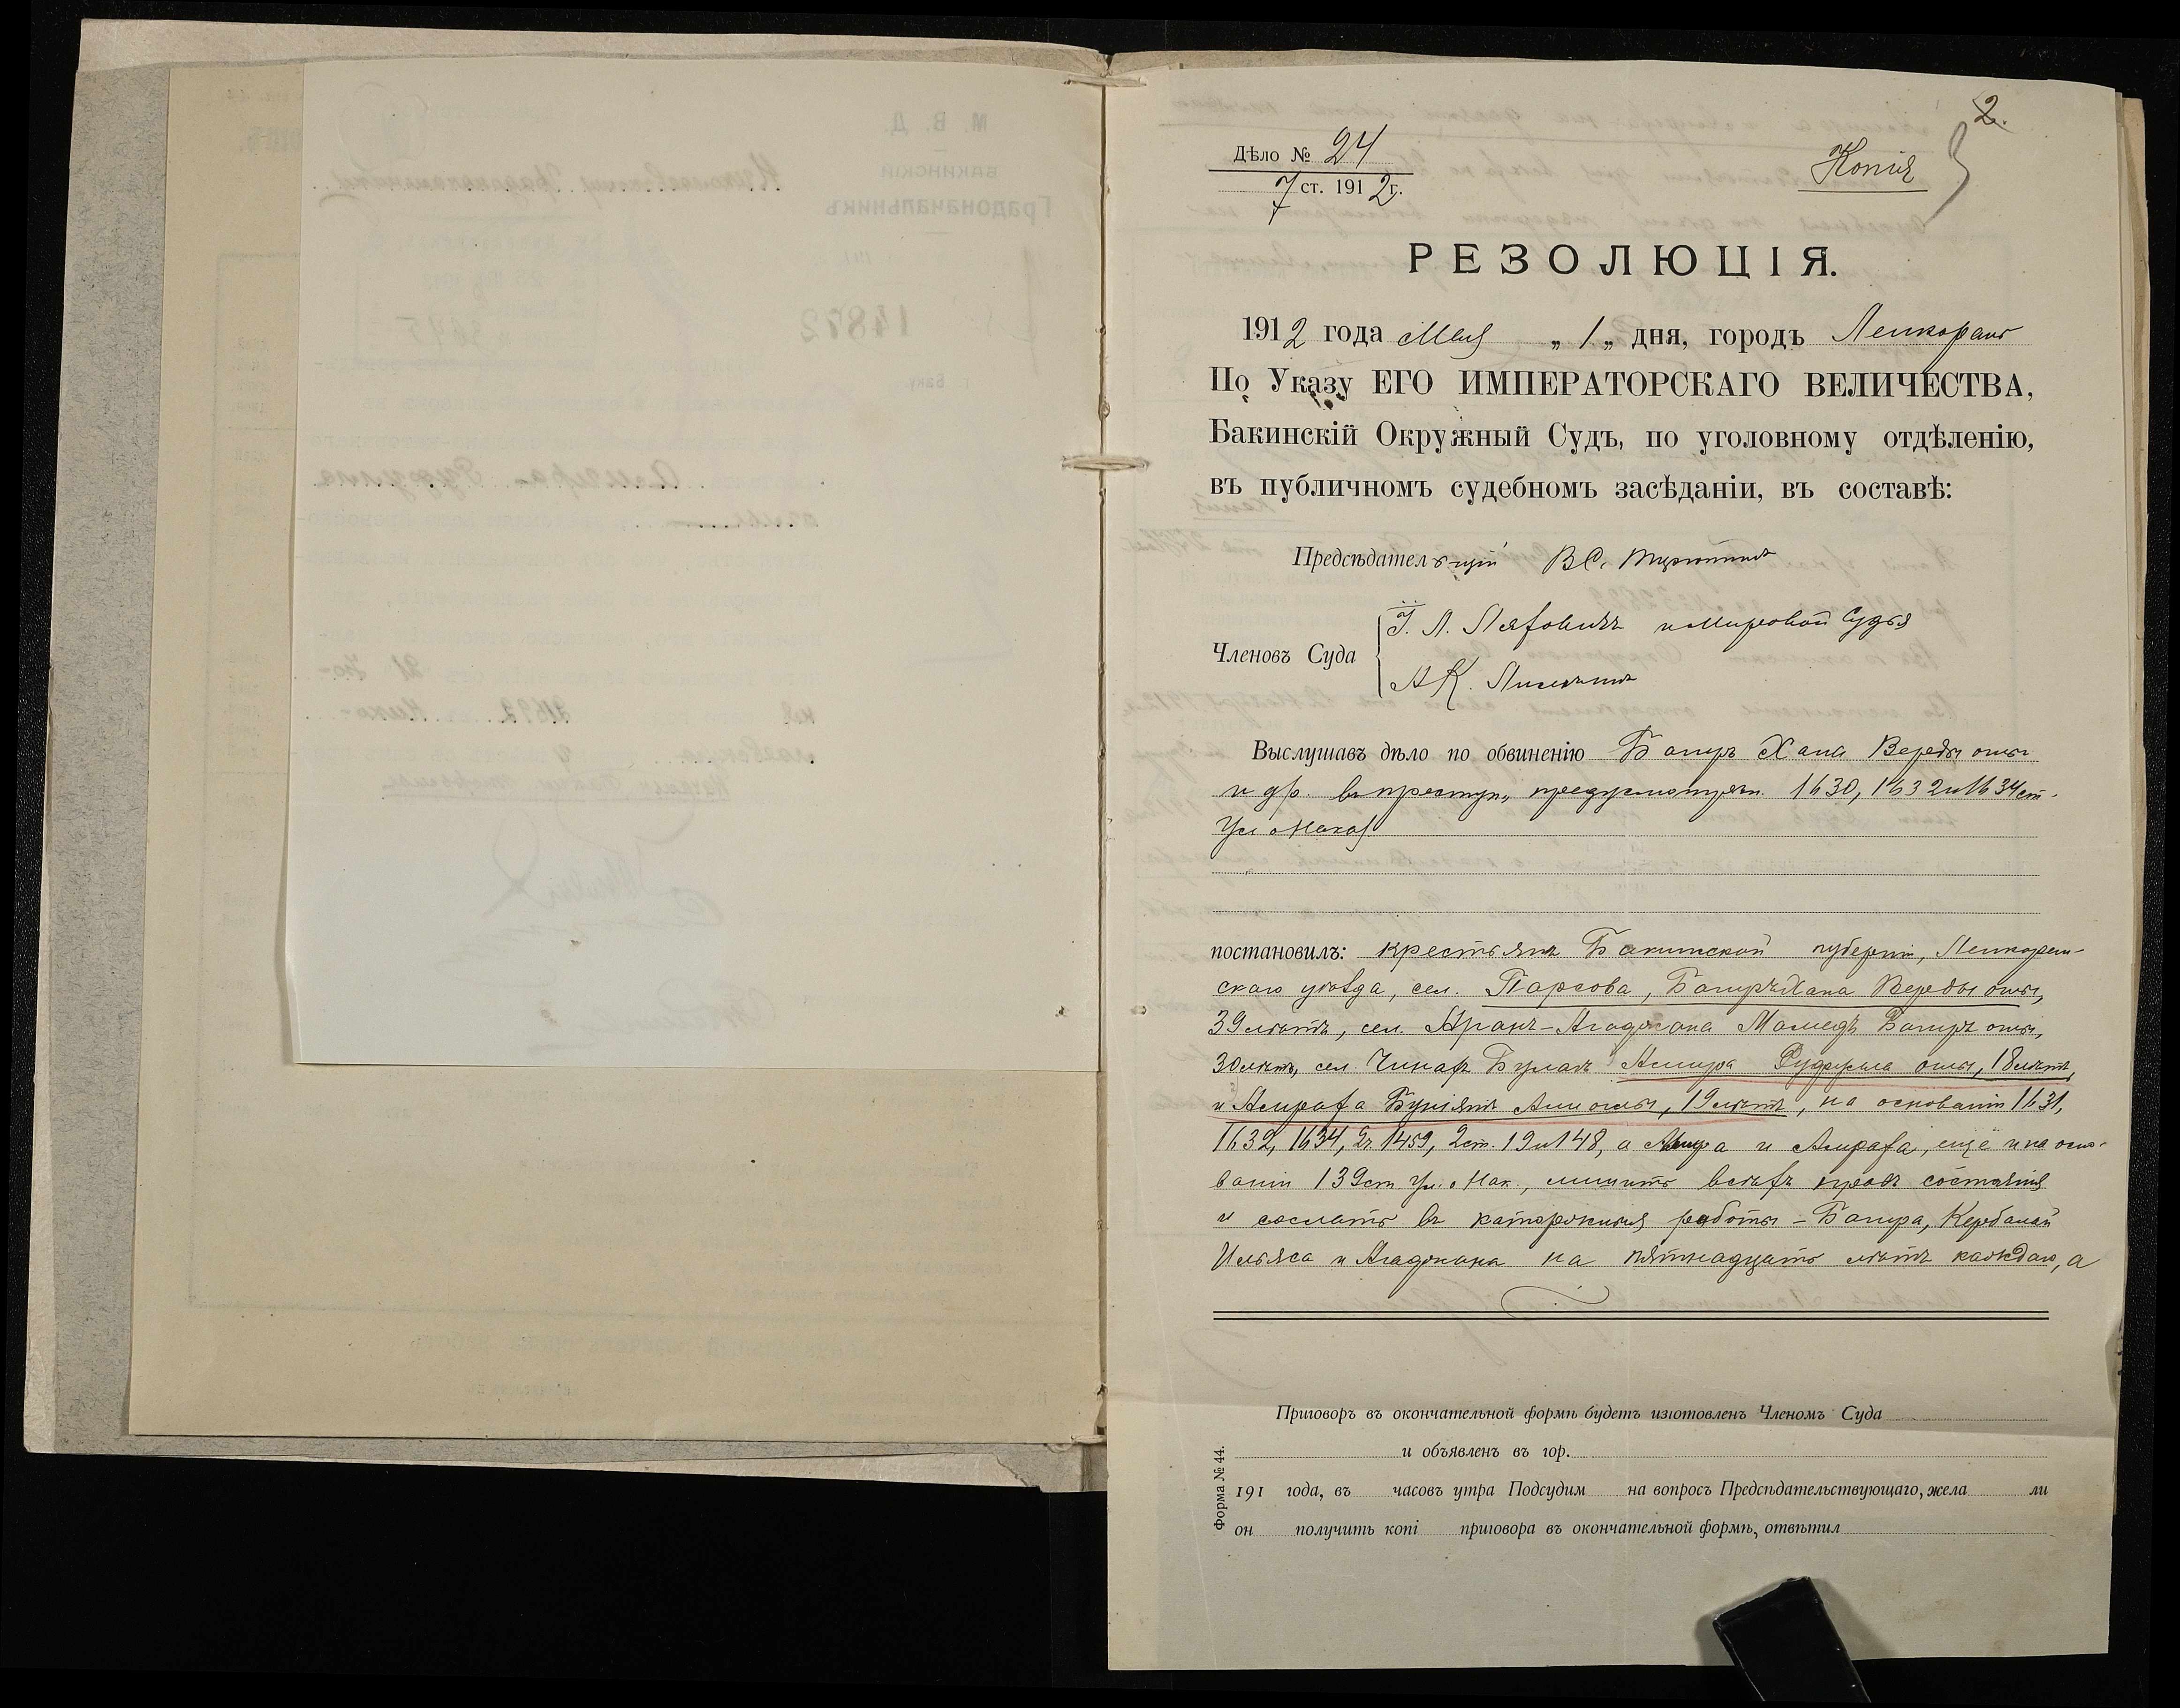 2.
Дѣло № 24
7 ст. 1912 г.
Копія
3
РЕЗОЛЮЦІЯ.
1912 года Мая „ 1 „ дня, городъ Ленкорань
По Указу ЕГО ИМПЕРАТОРСКАГО ВЕЛИЧЕСТВА,
Бакинскій Окружный Судъ, по уголовному отдѣленію,
въ публичномъ судебномъ засѣданіи, въ составѣ:
Предсѣдател ВС.
Членовъ Суда
Г. Л. и Мировой Судья
А К.
Выслушавъ дѣло по обвиненію Багиръ Хана Верды оглы
и др. въ преступ., предусмотрѣн. 1630, 1632 и 1634 ст.
Ул. о Наказ
постановилъ: крестьянъ Бакинской губерніи, Ленкоран-
скаго уѣзда, сел. Парсова, Багиръ Хана Верды оглы,
39 лѣтъ, сел. Аранъ - Агаджана Мамедъ Багиръ оглы,
30 лѣтъ, сел. Чинаръ Булахъ Амира оглы, 18 лѣтъ,
и Ашрафа Буніятъ Али оглы, 19 лѣтъ, на основаніи 1631,
1632, 1634, 2 ч. 1459, 2 ст. 19 и 148, а Амира и Ашрафа, еще и на осно-
ваніи 139 ст. Ул. о Нак., лишить всѣхъ правъ состоянія
и сослать въ каторжныя работы - Багира, Кербалай
Ильяса и Агаджана на пятнадцать лѣтъ каждаго, а
Приговоръ въ окончательной формѣ будетъ изготовленъ Членомъ Суда
и объявленъ въ гор.
191 года, въ часовъ утра Подсудим на вопросъ Предсѣдательствующаго, жела ли
он получить копі приговора въ окончательной формѣ, отвѣтил
Форма № 44.